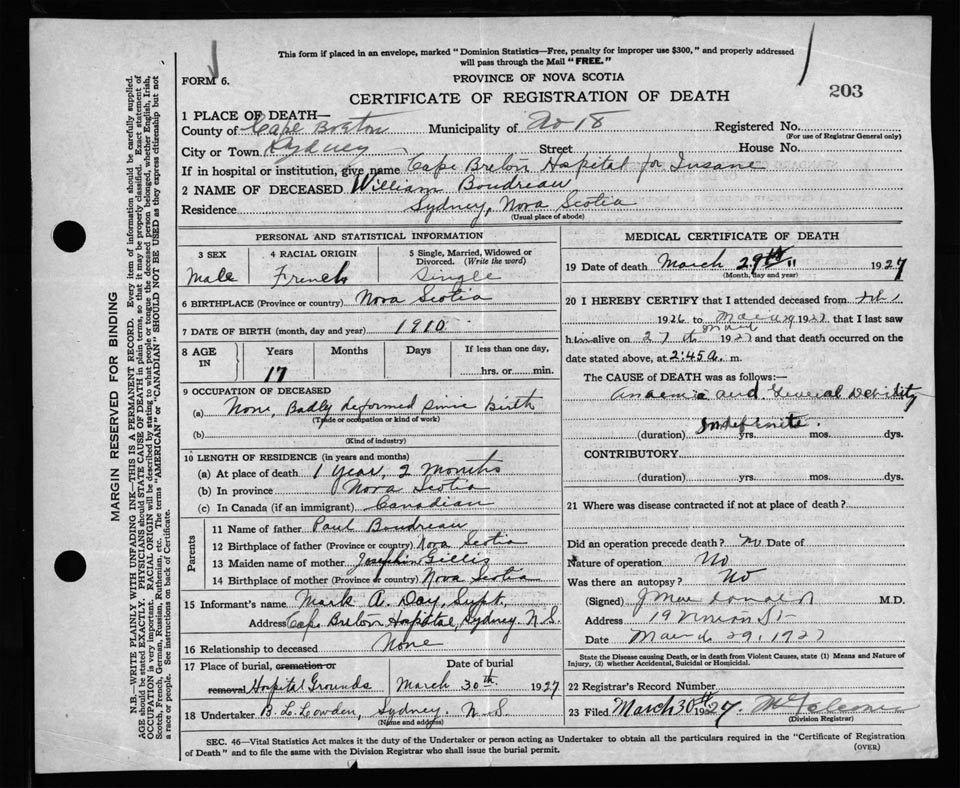 This form if placed in an envelope, marked "Dominion Statistics—Free, penalty for improper use $300," and properly addressed
will pass through the Mail "FREE."
FORM 6.
PROVINCE OF NOVA SCOTIA
CERTIFICATE OF REGISTRATION OF DEATH
203
1 PLACE OF DEATH—
County of Cape Breton Municipality of No 18 Registered No.
(For use of Registrar General only)
City or Town Sydney Street House No.
If in hospital or institution, give name Cape Breton Hospital for Insane
2 NAME OF DECEASED William Boudreau
Residence Sydney, Nova Scotia
(Usual place of abode)
PERSONAL AND STATISTICAL INFORMATION
3 SEX 4 RACIAL ORIGIN 5 Single, Married, Widowed or
Divorced. (Write the word)
Male French Single
6 BIRTHPLACE (Province or country) Nova Scotia
7 DATE OF BIRTH (month, day and year) 1910
8 AGE IN Years Months Days If less than one day,
17 hrs. or min.
9 OCCUPATION OF DECEASED
(a) None, Badly deformed since birth
(Trade or occupation or kind of work)
(b)
(Kind of industry)
10 LENGTH OF RESIDENCE (in years and months)
(a) At place of death 1 Year, 2 Months
(b) In province Nova Scotia
(c) In Canada (if an immigrant) Canadian
Parents
11 Name of father Paul Boudreau
12 Birthplace of father (Province or country) Nova Scotia
13 Maiden name of mother Josephin Gillis
14 Birthplace of mother (Province or country) Nova Scotia
15 Informant's name Mark A. Day, Supt,
Address Cape Breton Hospital, Sydney. N.S.
16 Relationship to deceased None
17 Place of burial, cremation or Date of burial
removal Hospital Grounds March 30th 1927
18 Undertaker B. L. Lowden, Sydney. N.S.
(Name and address)
MEDICAL CERTIFICATE OF DEATH
19 Date of death March 29th 1927
(Month, day and year)
20 I HEREBY CERTIFY that I attended deceased from Feb 1
1926 to March 29 1927 that I last saw
him alive on 27th 1927 and that death occurred on the
date stated above, at 2:45 a. m.
The CAUSE OF DEATH was as follows:—
Anaemia and General Debility
Indefinite.
(duration) yrs. mos. dys.
CONTRIBUTORY
(duration) yrs. mos. dys.
21 Where was disease contracted if not at place of death?
Did an operation precede death? No Date of
Nature of operation No
Was there an autopsy? No
(Signed) M.D.
Address 19 Union St
Date March 29, 1927
State the Disease causing Death, or in death from Violent Causes, state (1) Means and Nature of
Injury, (2) whether Accidental, Suicidal or Homicidal.
22 Registrar's Record Number
23 Filed March 30th 1927.
(Division Registrar)
SEC. 46—Vital Statistics Act makes it the duty of the Undertaker or person acting as Undertaker to obtain all the particulars required in the "Certificate of Registration
of Death" and to file the same with the Division Registrar who shall issue the burial permit.
(OVER)
MARGIN RESERVED FOR BINDING
N.B.—WRITE PLAINLY WITH UNFADING INK—THIS IS A PERMANENT RECORD. Every item of information should be carefully supplied.
AGE should be stated EXACTLY. PHYSICIANS should STATE CAUSE OF DEATH in plain terms, so that it may be properly classified. Exact statement of
OCCUPATION is very important. RACIAL ORIGIN will be described by stating to what people or tongue the deceased person belonged, whether English, Irish,
Scotch, French, German, Russian, Ruthenian, etc. The terms "AMERICAN" or "CANADIAN" SHOULD NOT BE USED as they express citizenship but not
a race or people. See instructions on back of Certificate.